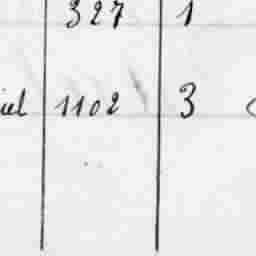 327 1
iel 1102 3